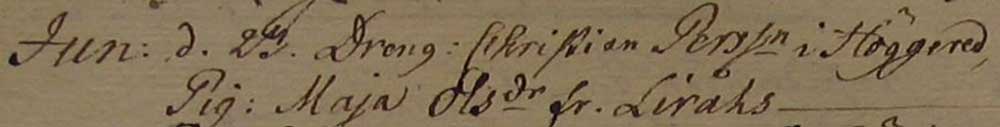 Jun: d. 29. Dreng: Christian Perssn i Höggered,
Pig: Maja Olsdr fr. Liråhs